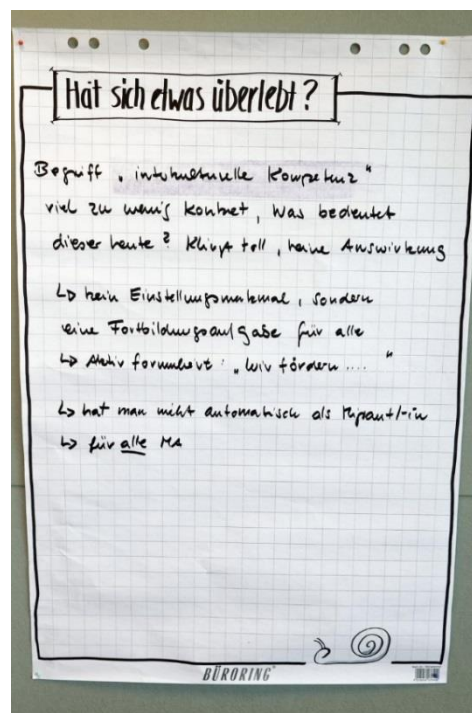 Hat sich etwas überlebt?
Begriff „interkulturelle Kompetenz"
viel zu wenig konkret, Was bedeutet
dieser heute? Klingt toll, keine Auswirkung
↳ kein Einstellungsmerkmal, sondern
eine Fortbildungsaufgabe für alle
↳ Aktiv formuliert: „Wir fördern ...."
↳ hat man nicht automatisch als Migrant/-in
↳ für alle MA
BÜRORING